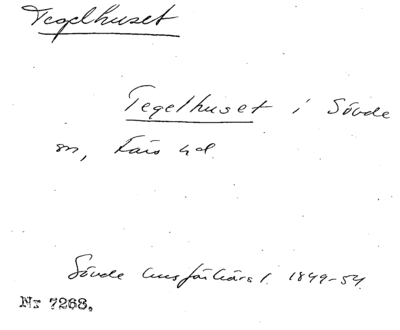 Tegelhuset
Tegelhuset i Sövde
sn, Färs hd.
Sövde husförhörsl. 1849-54.
Nr 7268.